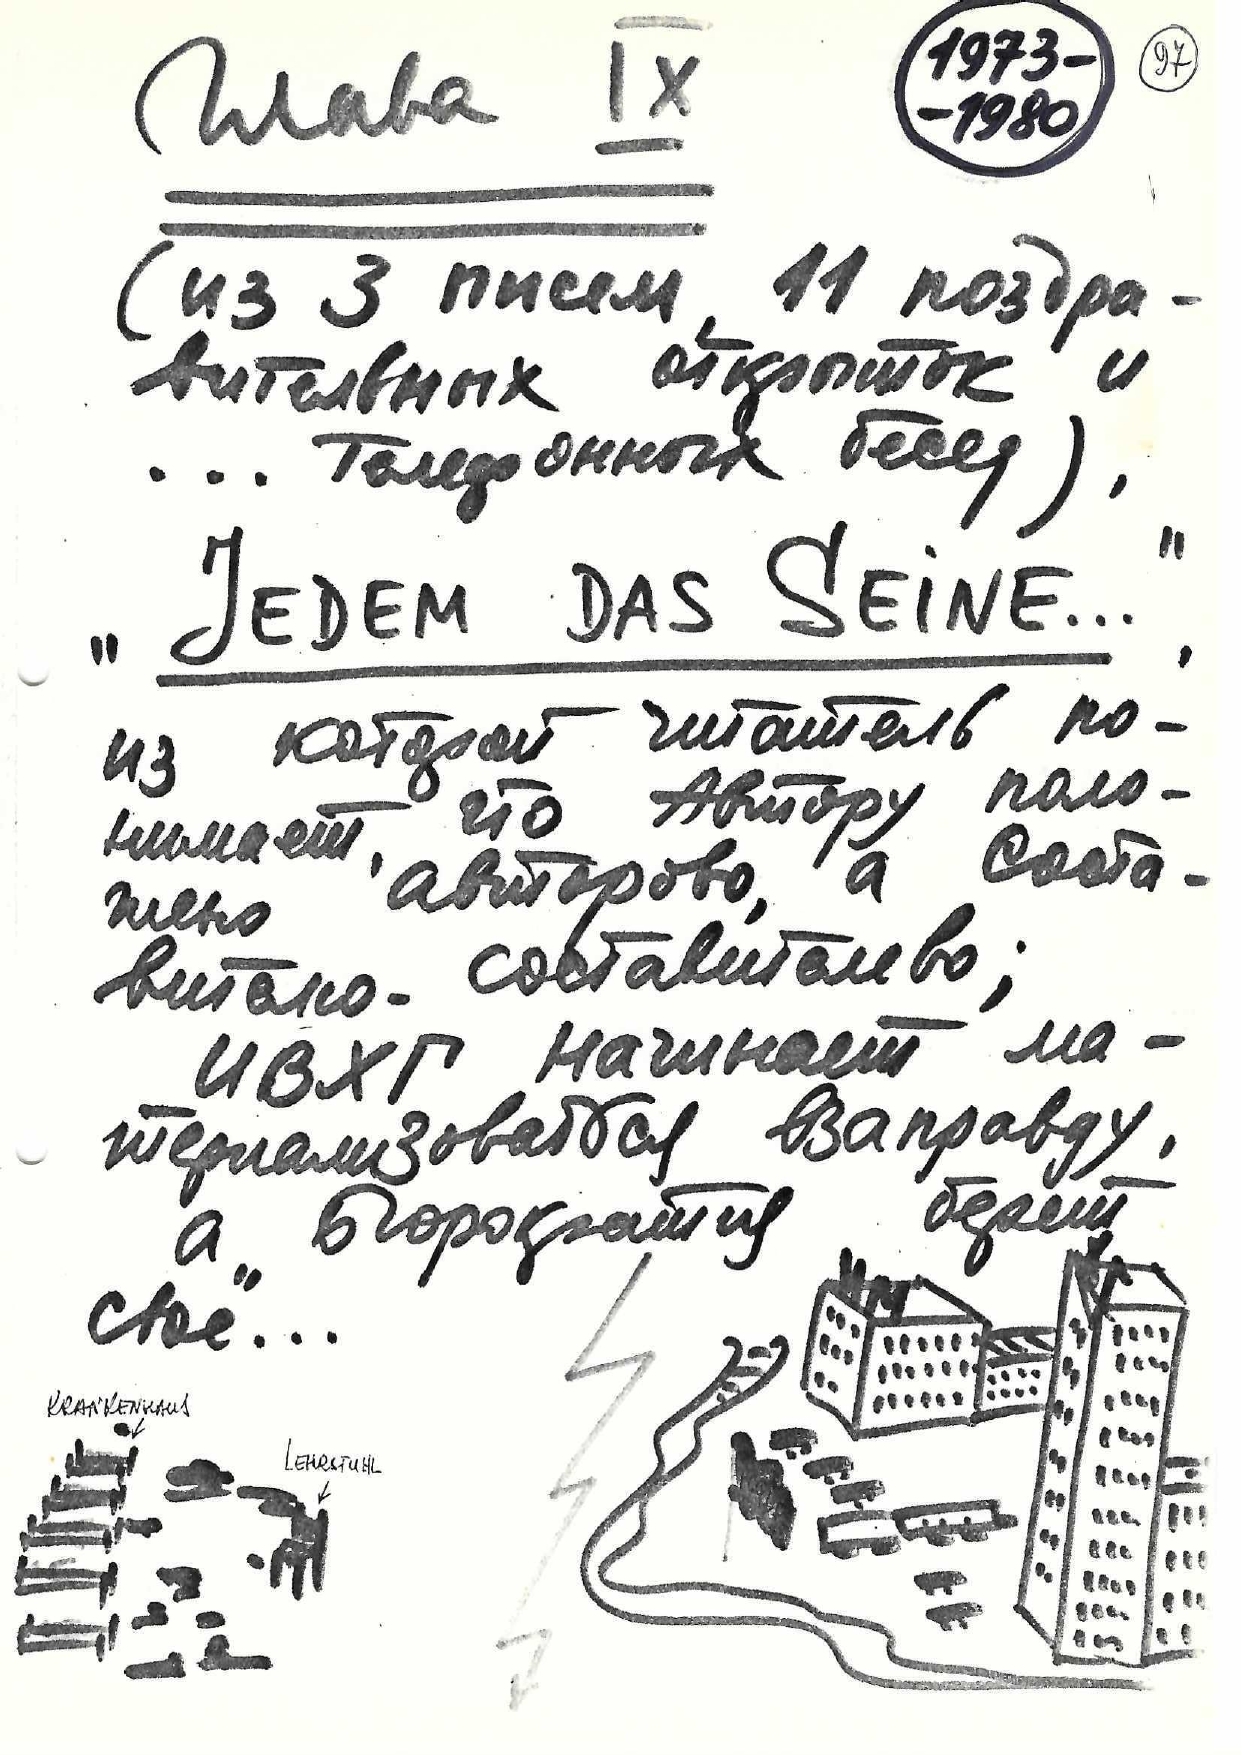 Глава IX
1973-
-1980
97
(из 3 писем, 11 поздра-
вительных открыток и
... телефонных бесед),
„JEDEM DAS SEINE...",
из которой читатель по-
нимает, что Автору поло-
жено авторово, а Соста-
вителю - составителево;
ИВХГ начинает ма-
териализоваться взаправду,
а Бюрократия берет
своё"...
KRANKENHAUS
LEHRSTUHL